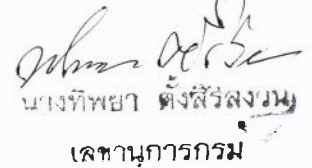 นางทิพยา ตั้งสิริสงวน
เลขานุการกรม